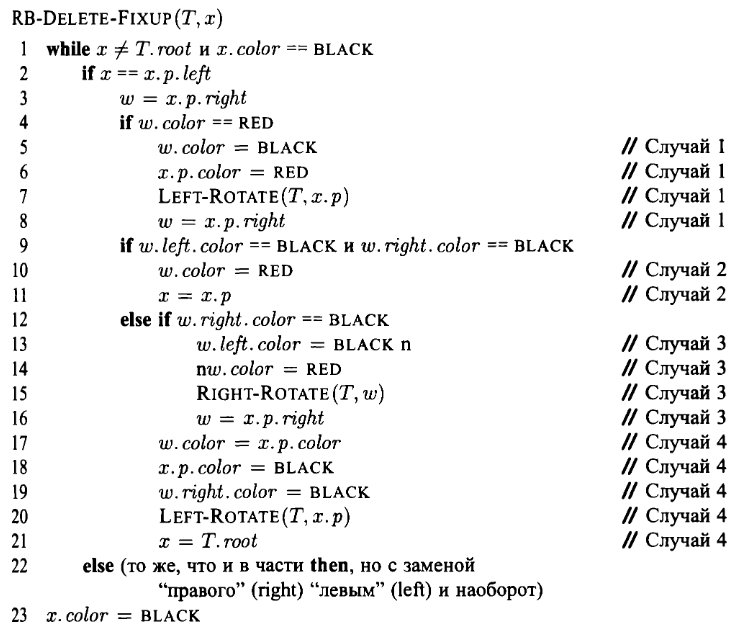 RB-DELETE-FIXUP(T, x)
1 while x ≠ T.root и x.color == BLACK
2 if x == x.p.left
3 w = x.p.right
4 if w.color == RED
5 w.color = BLACK // Случай 1
6 x.p.color = RED // Случай 1
7 LEFT-ROTATE(T, x.p) // Случай 1
8 w = x.p.right // Случай 1
9 if w.left.color == BLACK и w.right.color == BLACK
10 w.color = RED // Случай 2
11 x = x.p // Случай 2
12 else if w.right.color == BLACK
13 w.left.color = BLACK n // Случай 3
14 nw.color = RED // Случай 3
15 RIGHT-ROTATE(T, w) // Случай 3
16 w = x.p.right // Случай 3
17 w.color = x.p.color // Случай 4
18 x.p.color = BLACK // Случай 4
19 w.right.color = BLACK // Случай 4
20 LEFT-ROTATE(T, x.p) // Случай 4
21 x = T.root // Случай 4
22 else (то же, что и в части then, но с заменой
“правого” (right) “левым” (left) и наоборот)
23 x.color = BLACK